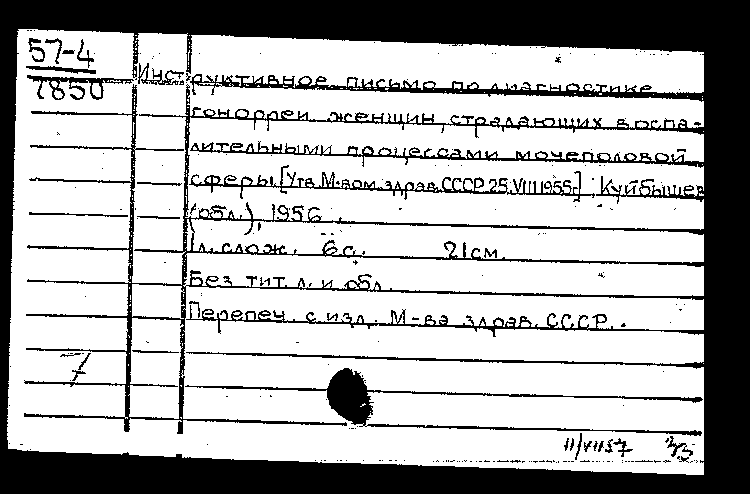 57-4
7850
Инструктивное письмо по диагностике
гонорреи женщин, страдающих воспа-
лительными процессами мочеполовой
сферы. [Утв. М-вом здрав. СССР 25.VIII 1955г.] Куйбышев
(обл.), 1956.
1 л. слож. 6 с. 21 см.
Без тит. л. и обл.
Перепеч. с изд. М-ва здрав. СССР.
7
11/VII 57